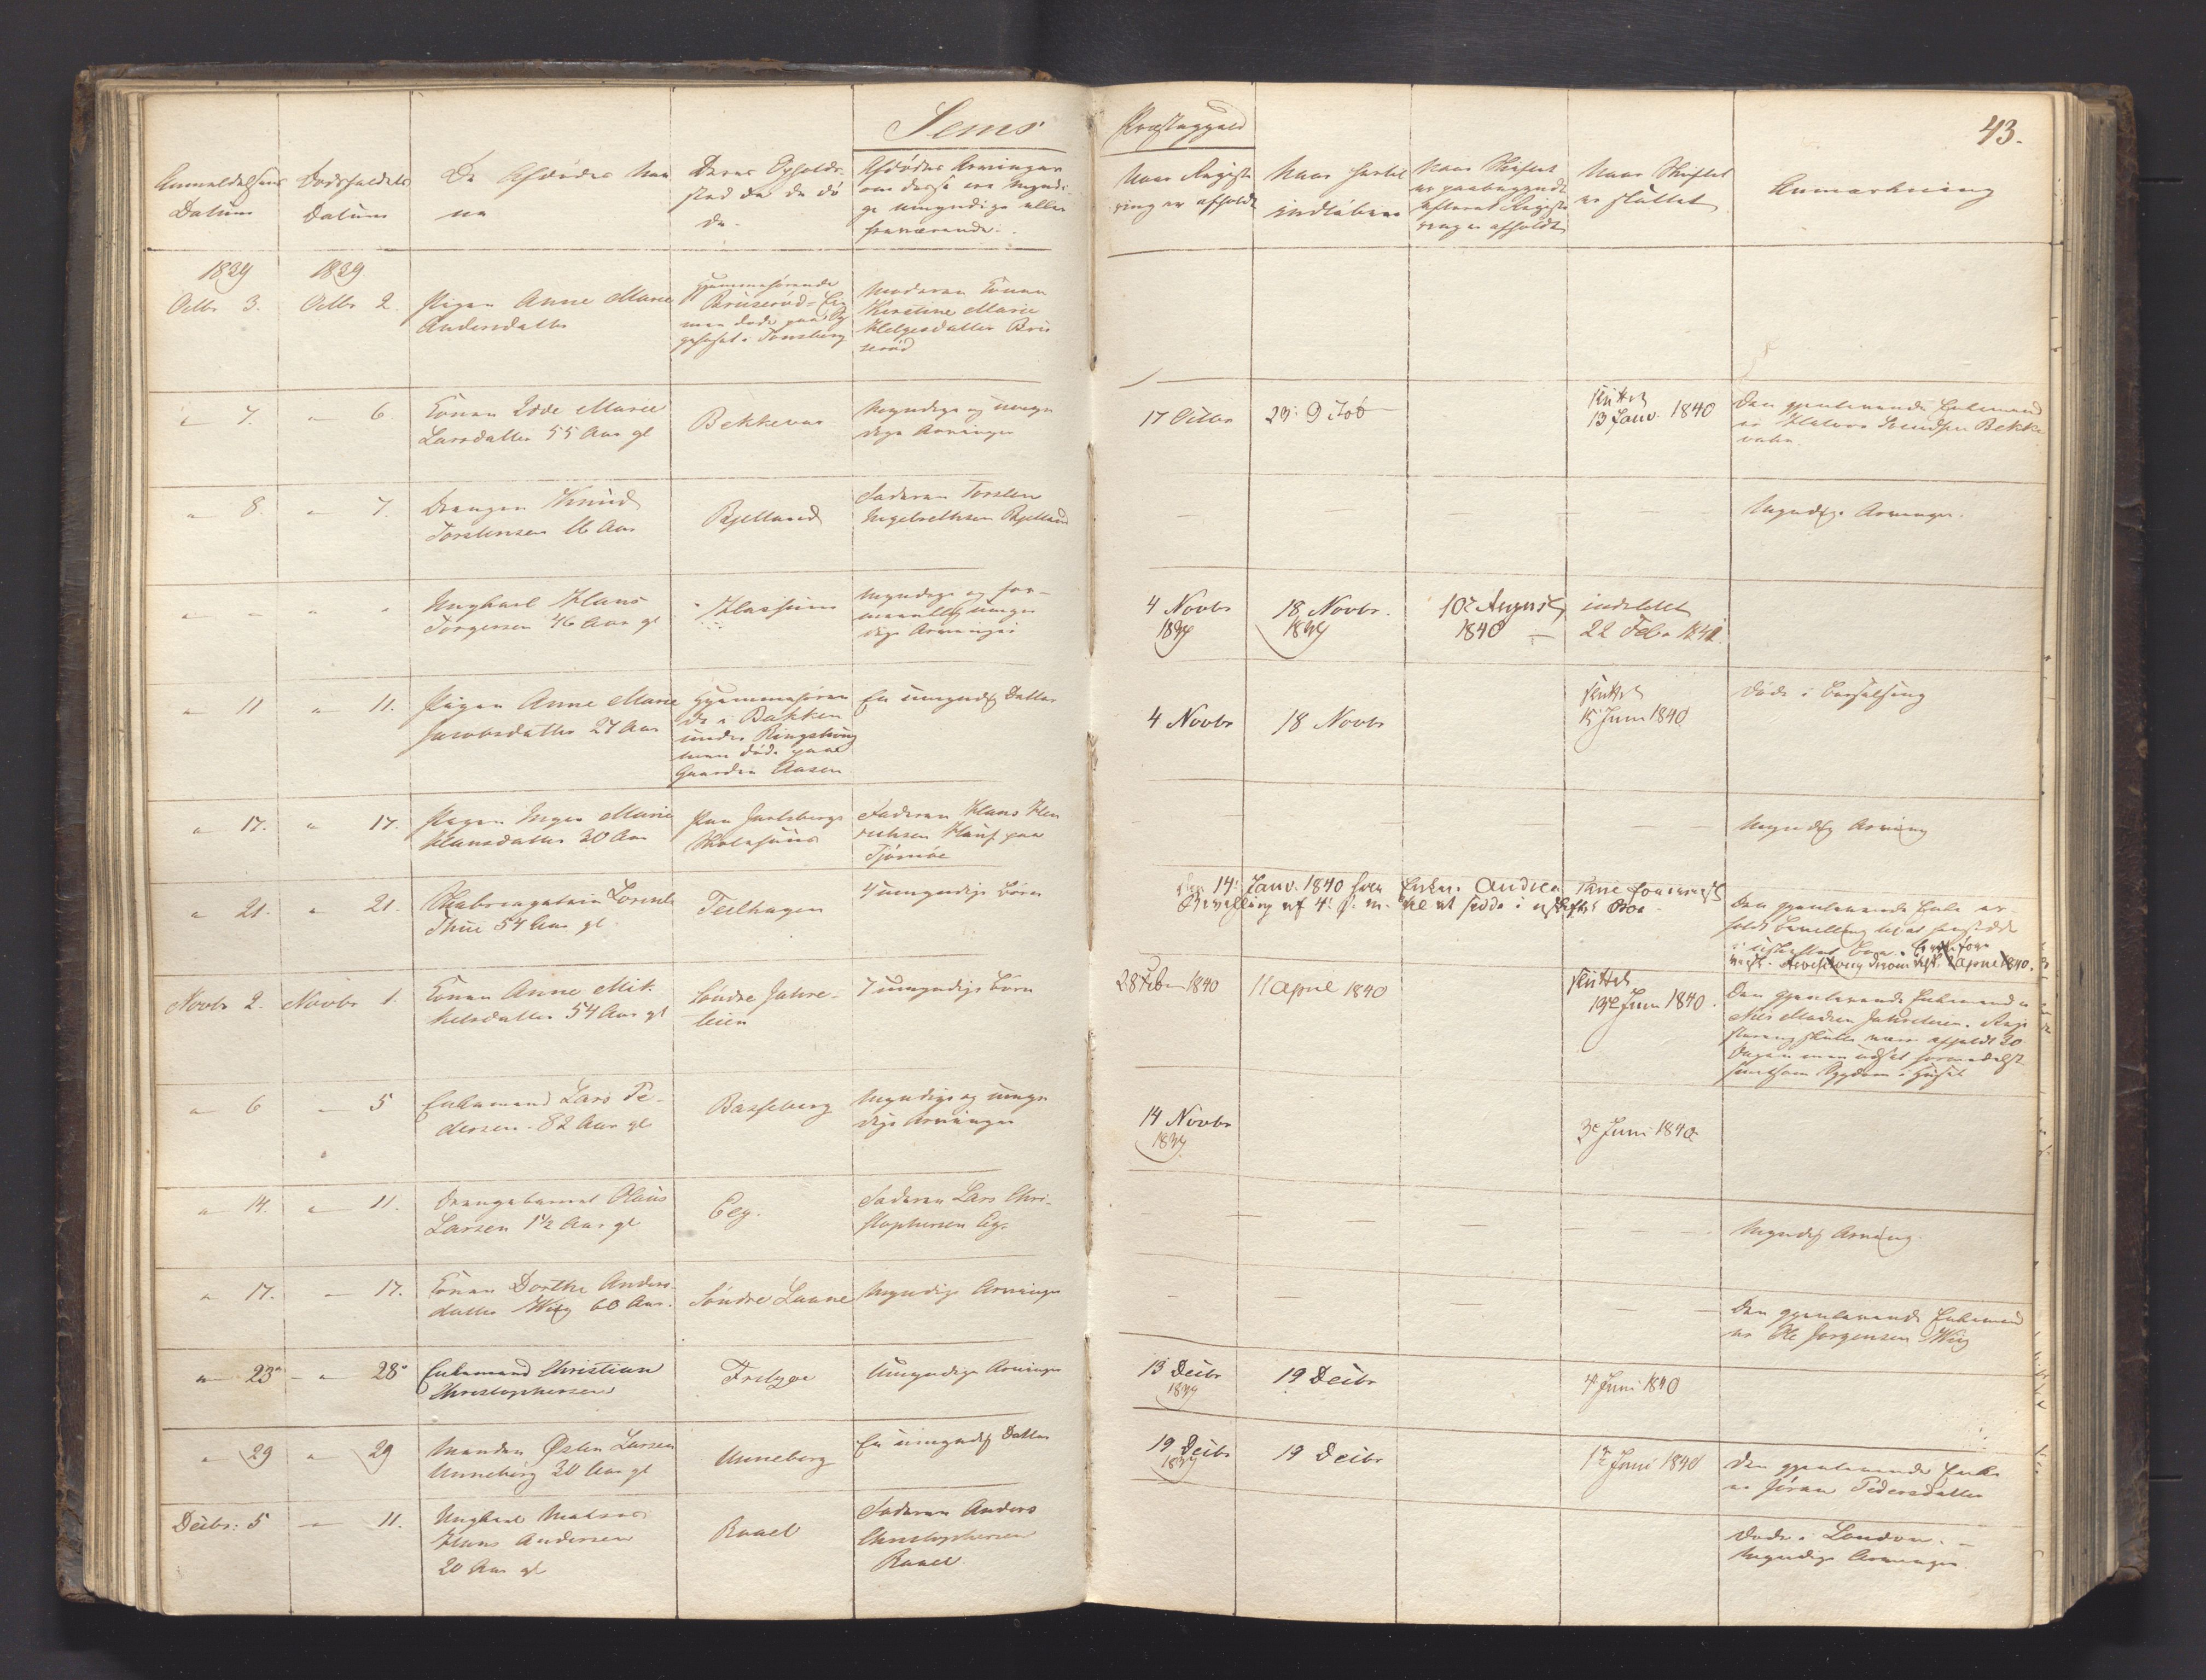 Sems
Præstegjeld
43.
Anmeldelsens
Datum
Dødsfaldets
Datum
De Afdødes Nav
ne
Deres Opholds-
sted da de dö
de.
Afdødes Arvinger
om disse ere myndi-
ge umyndige eller
fraværende.
Naar Registe
ring er afholdt
Naar
indløbene
Naar Skiftet
er paabegyndt
efterat Registe
ring er afholdt
Naar Skiftet
er sluttet
Anmærkning
1839
1839
Octbr 3.
Octbr 2.
Pigen Anne Marie
Andersdatter
hjemmehørende
Brüserød
men døde paa Sy
gehuset i Tønsberg
Moderen Konen
Kirstine Marie
Helgesdatter Brü
serød
" 7.
" 6.
Konen Marie
Larsdatter 55 Aar gl
Bekkevar
Myndige og umyn
dige Arvinger
17 Octbr
23: 9 Tob
sluttet
13 Janv. 1840
Den gjenlevende Enkemand
er Halvor Bekke
" 8.
" 7.
Drengen Knud
Torstensen 16 Aar
Bjelland
Faderen Torsten
Ingebrethsen Bjelland
Myndige Arvinger.
" " " "
Ungkarl Hans
Jørgensen 46 Aar gl
Myndige og for-
mentlig umyn
dige Arvinger
4 Novbr
1839
18 Novbr.
1839
10de August
1840
indstillet
22 Feb. 1842.
" 11
" 11.
Pigen Anne Marie
Jacobsdatter 27 Aar
Hjemmehøren
de i Bakken
under Ringshoug
men døde paa
Gaarden Aasen
En umyndig Datter
4 Novbr
18 Novbr
sluttet
15 Juni 1840
Døde i Barselseng
" 17.
" 17.
Pigen Inger Marie
Hansdatter 30 Aar
Paa Jarlsbergs
Faderen Hans Hen
richsen paa
Tjømöe
Myndig Arving
" 21.
" 21.
Lorents
Thue 54 Aar gl
Teilhagen
4 umyndige Börn
14: Janv. 1840 Enken Andrea
Bevilling af 4: s. m. til at sidde i uskiftet Boe.
Den gjenlevende Enke er-
holdt Bevilling til at hensidde
i uskiftet Boe.
April 1840.
Novbr 2.
Novbr 1.
Konen Anne Mik-
kelsdatter 54 Aar gl
Søndre Jahre-
leien
7 umyndige Börn
28 Febr 1840
11 April 1840
sluttet
19de Juni 1840.
Den gjenlevende Enkemand er
Niels Madsen Jahreleien. Regi
stering skulle være afholdt 20
Dagen men udsat formedelst
smitsom Sygdom i Huset
" 6
" 5
Enkemand Lars Pe-
dersen 82 Aar gl
Basseberg
Myndige og umyn
dige Arvinger
14 Novbr
1839
3de Juni 1840
" 14.
" 11.
Drengebarnet Olaus
Larsen 1 1/2 Aar gl
Eeg.
Faderen Lars Chri-
stophersen Eeg.
Myndig Arving.
" 17.
" 17.
Konen Dorthe Anders-
datter Wiig 60 Aar.
Søndre Laane
Myndige Arvinger
Den gjenlevende Enkemand
er Ole Jørgensen Wiig
" 23
" 28
Enkemand Christian
Christophersen
Umyndige Arvinger
13 Decbr
1839
19 Decbr
4 Juni 1840
" 29
" 29
Manden Østen Larsen
Unneberg 30 Aar gl
Unneberg
En umyndig Datter
19 Decbr
1839
19 Decbr
1te Juni 1840
Den gjenlevende Enke
er Jøran Pedersdatter
Decbr: 5
" 11.
Ungkarl Matros
Hans Andersen
20 Aar gl
Raael
Faderen Anders
Christophersen
Raael
Døde i London. -
Myndige Arvinger.